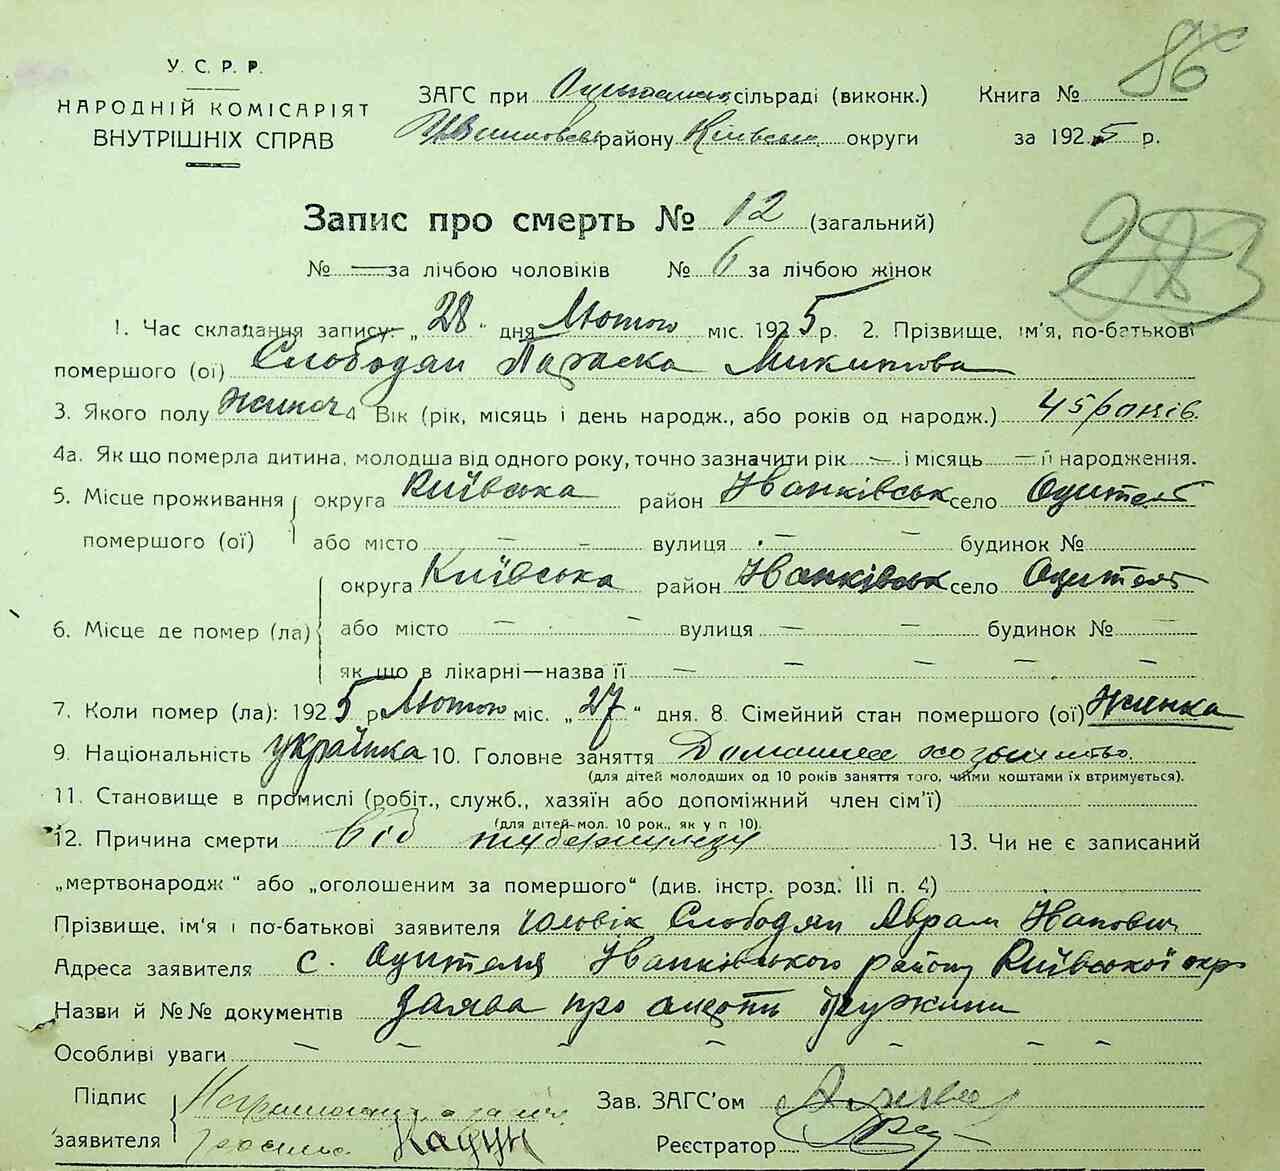 У. С. Р. Р.
НАРОДНІЙ КОМІСАРІЯТ
ВНУТРІШНІХ СПРАВ
ЗАГС при сільраді (виконк.)
району Київськ. округи
Книга № 86
за 1925 р.
Запис про смерть № 12 (загальний)
№ — за лічбою чоловіків № 6 за лічбою жінок
1. Час складання запису: „28" дня Лютого міс. 1925 р. 2. Прізвище, ім'я, по-батькові
помершого (ої) Слободян Параска Микитова
3. Якого полу жиноч 4 Вік (рік, місяць і день народж., або років од народж.) 45 років.
4а. Як що померла дитина, молодша від одного року, точно зазначити рік — і місяць — її народження.
5. Місце проживання помершого (ої) округа Київська район Іванківськ село Одителя
або місто — — вулиця — — будинок №
6. Місце де помер (ла) округа Київська район Іванківськ село Одителя
або місто — — вулиця — — будинок № —
як що в лікарні—назва її — — — — — —
7. Коли помер (ла): 1925 р Лютого міс. „27" дня. 8. Сімейний стан помершого (ої) Жинка
9. Національність українка 10. Головне заняття Домашнє
(для дітей молодших од 10 років заняття того, чиїми коштами їх втримується).
11. Становище в промислі (робіт., служб., хазяїн або допоміжний член сім'ї)
(для дітей-мол. 10 рок., як у п 10).
12. Причина смерти від 13. Чи не є записаний
„мертвонародж" або „оголошеним за помершого" (див. інстр. розд. III п. 4)
Прізвище, ім'я і по-батькові заявителя чоловік Слободян Аврам Іванович
Адреса заявителя с. Одителя Іванківського району Київської окр
Назви й №№ документів Заява про смерть дружини
Особливі уваги — — — — — — —
Підпис заявителя
Зав. ЗАГС'ом
Реєстратор